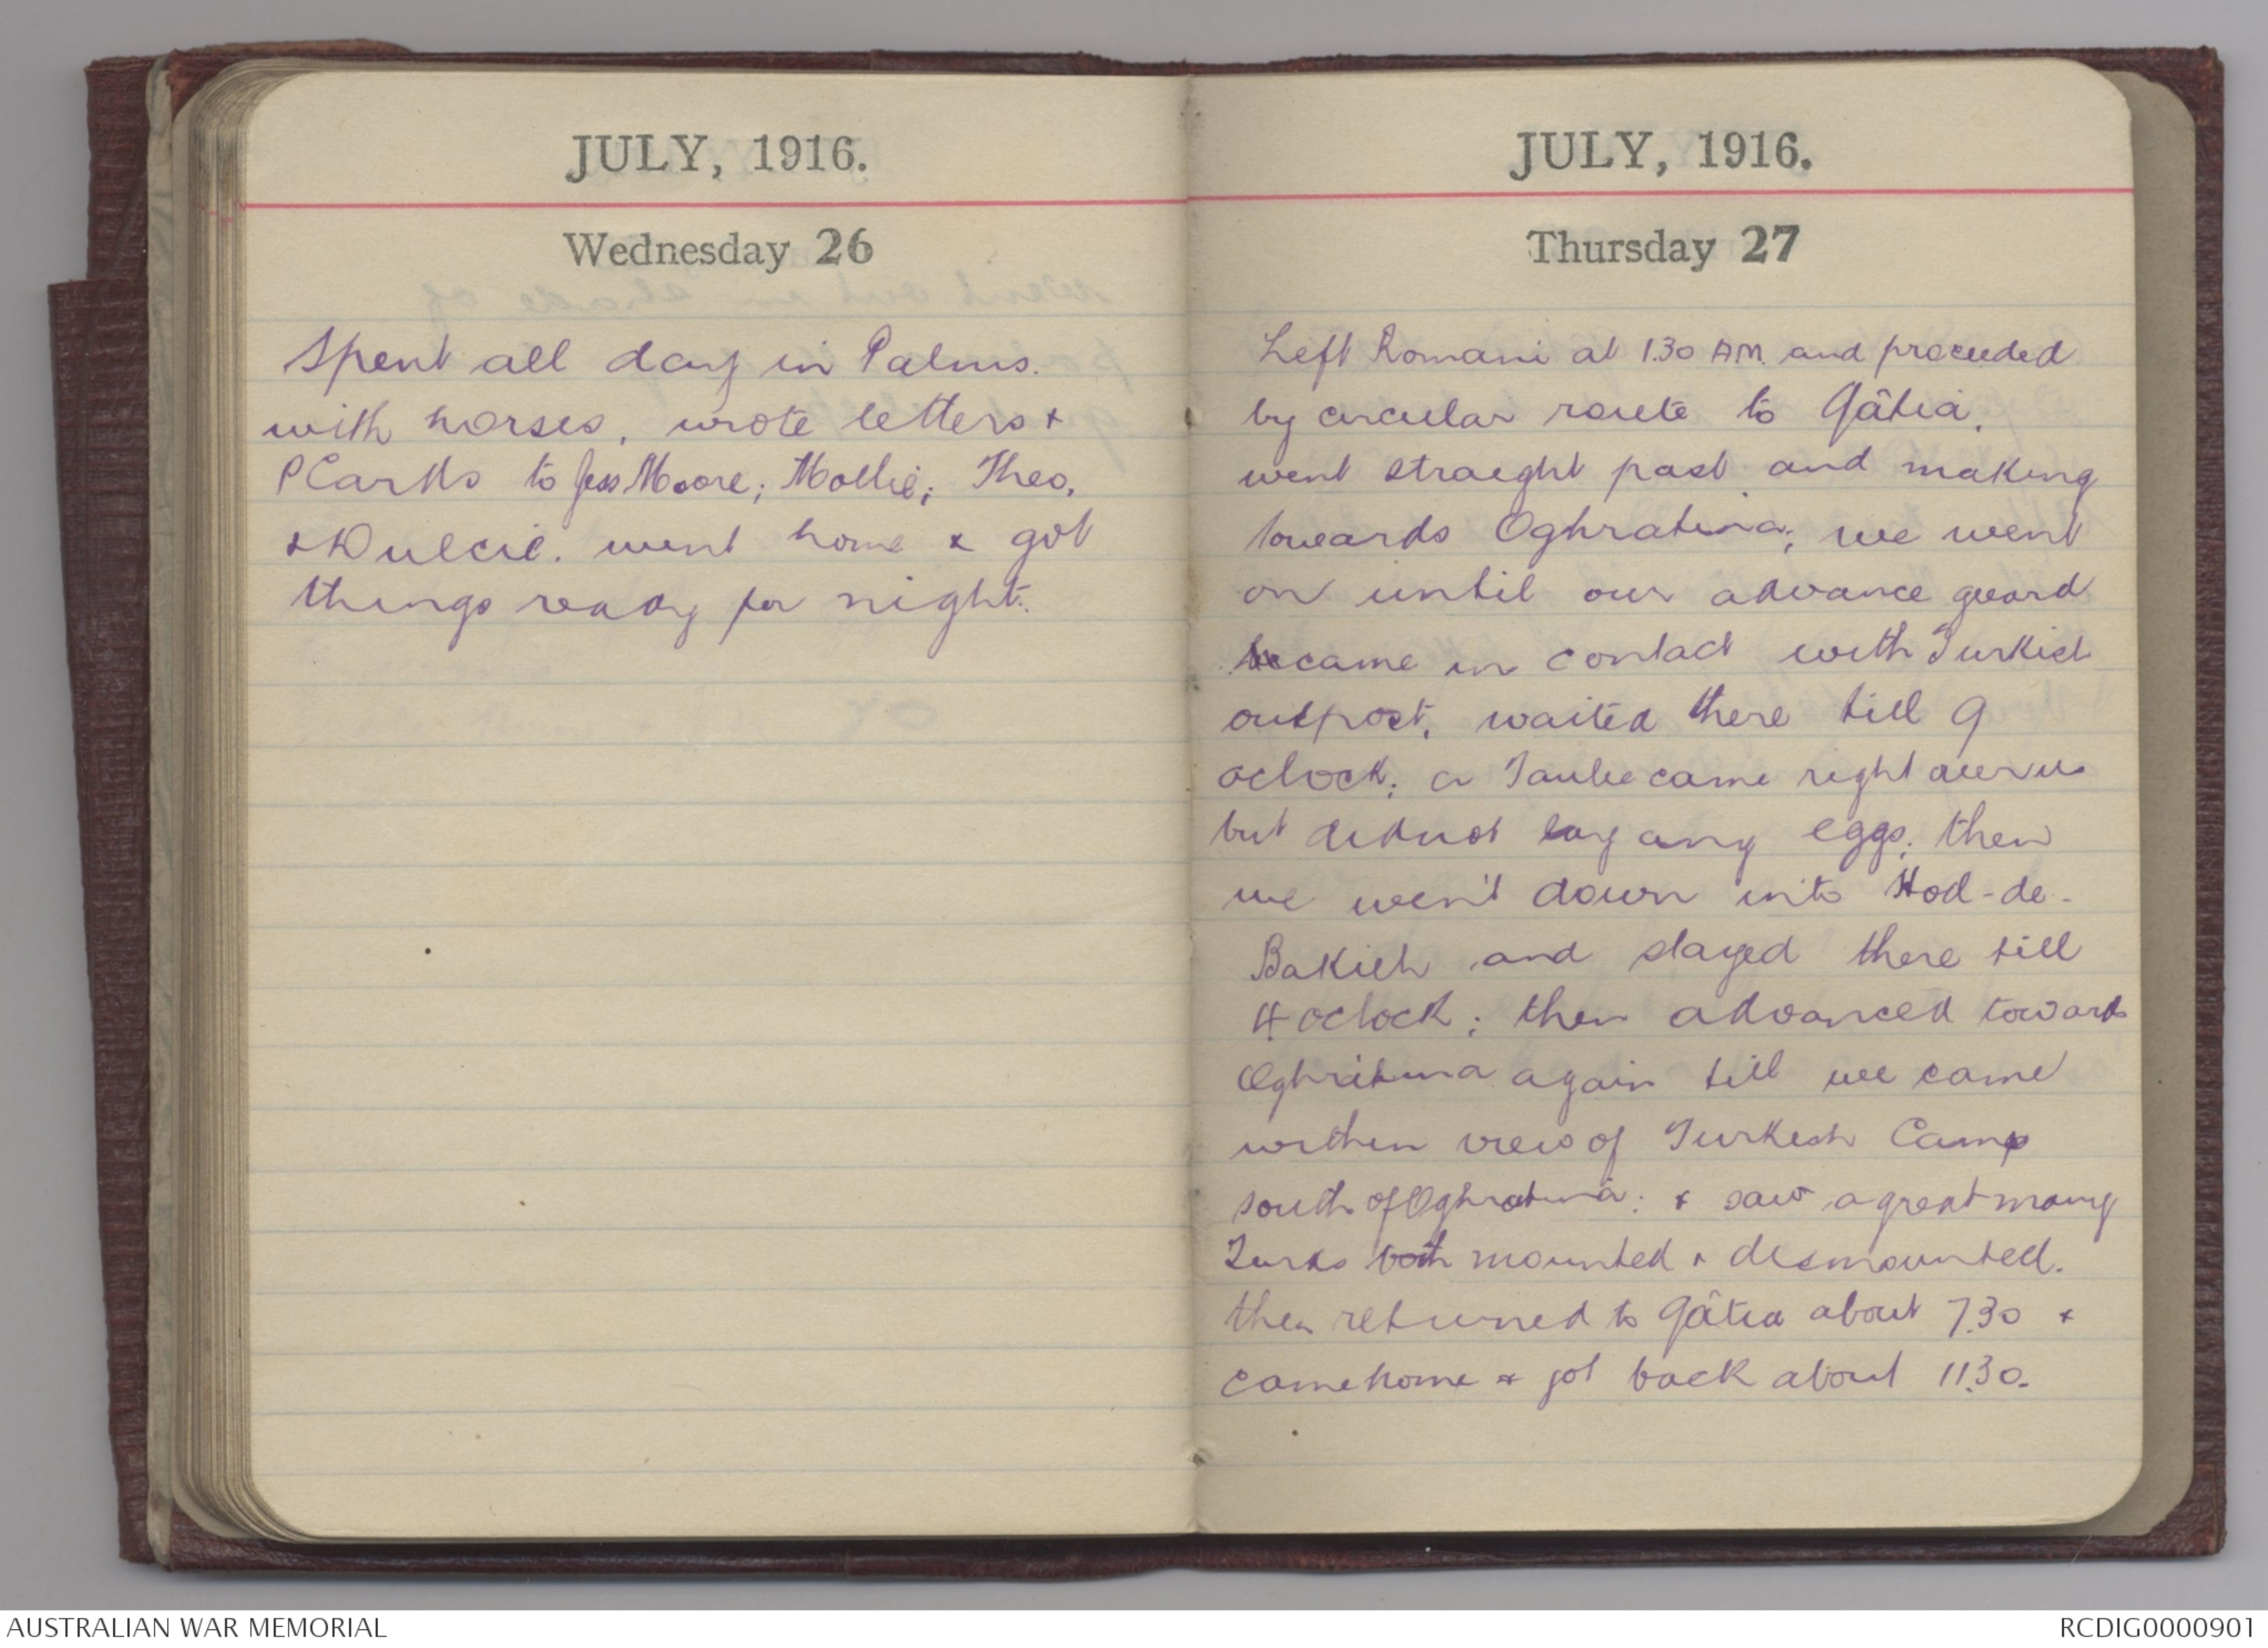 JULY, 1916.
Wednesday 26
Spent all day in Palms.
with horses, wrote letters &
PCards to Jess Moore; Mollie; Theo,
& Dulcie. went home & got
things ready for night.
JULY, 1916.
Thursday 27
Left Romani at 1.30 A.M. and proceeded
by circular route to Qâtia,
went straight past and making
towards Oghratina; we went
on until our advance guard
became in contact with Turkish
outpost, waited there till 9
oclock; a Taube came right over us
but did not lay any eggs; then
we went down into Hod-de-
Bakieh and stayed there till
4 oclock; then advanced towards
Oghratina again till we came
within view of Turkish Camp
south of Oghratina; & saw a great many
Turks both mounted & dismounted.
then returned to Qâtia about 7.30 &
came home & got back about 11.30.
AUSTRALIAN WAR MEMORIAL
RCDIG0000901